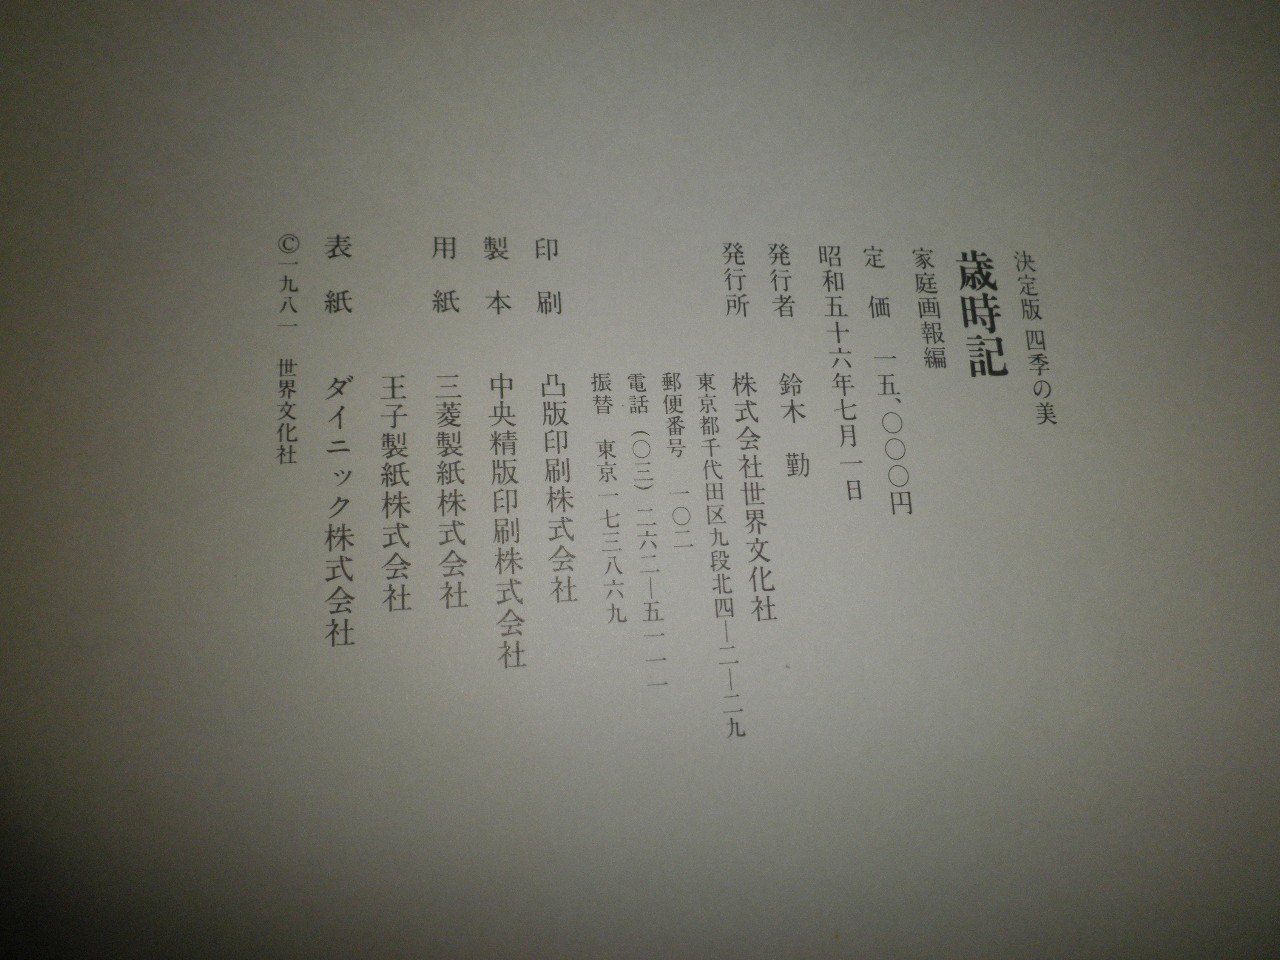 決定版 四季の美
歳時記
家庭画報編
定価 一五、〇〇〇円
昭和五十六年七月一日
発行者 鈴木 勤
発行所 株式会社世界文化社
東京都千代田区九段北四―二―二九
郵便番号 一〇二
電話(〇三)二六二―五一一一
振替 東京一七三八六九
印刷 凸版印刷株式会社
製本 中央精版印刷株式会社
用紙 三菱製紙株式会社
王子製紙株式会社
表紙 ダイニック株式会社
©一九八一 世界文化社